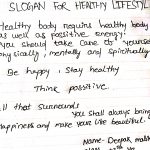 SLOGAN FOR HEALTHY LIFESTYL
Healthy body requires healthy body
as well as positive energy.
You should take care of yourse
Physically, mentally and spiritually
Be happy, Stay healthy
Think positive.
ll that surrounds
you shall always bring
Happiness and make your life beautiful.
Name- Deepak